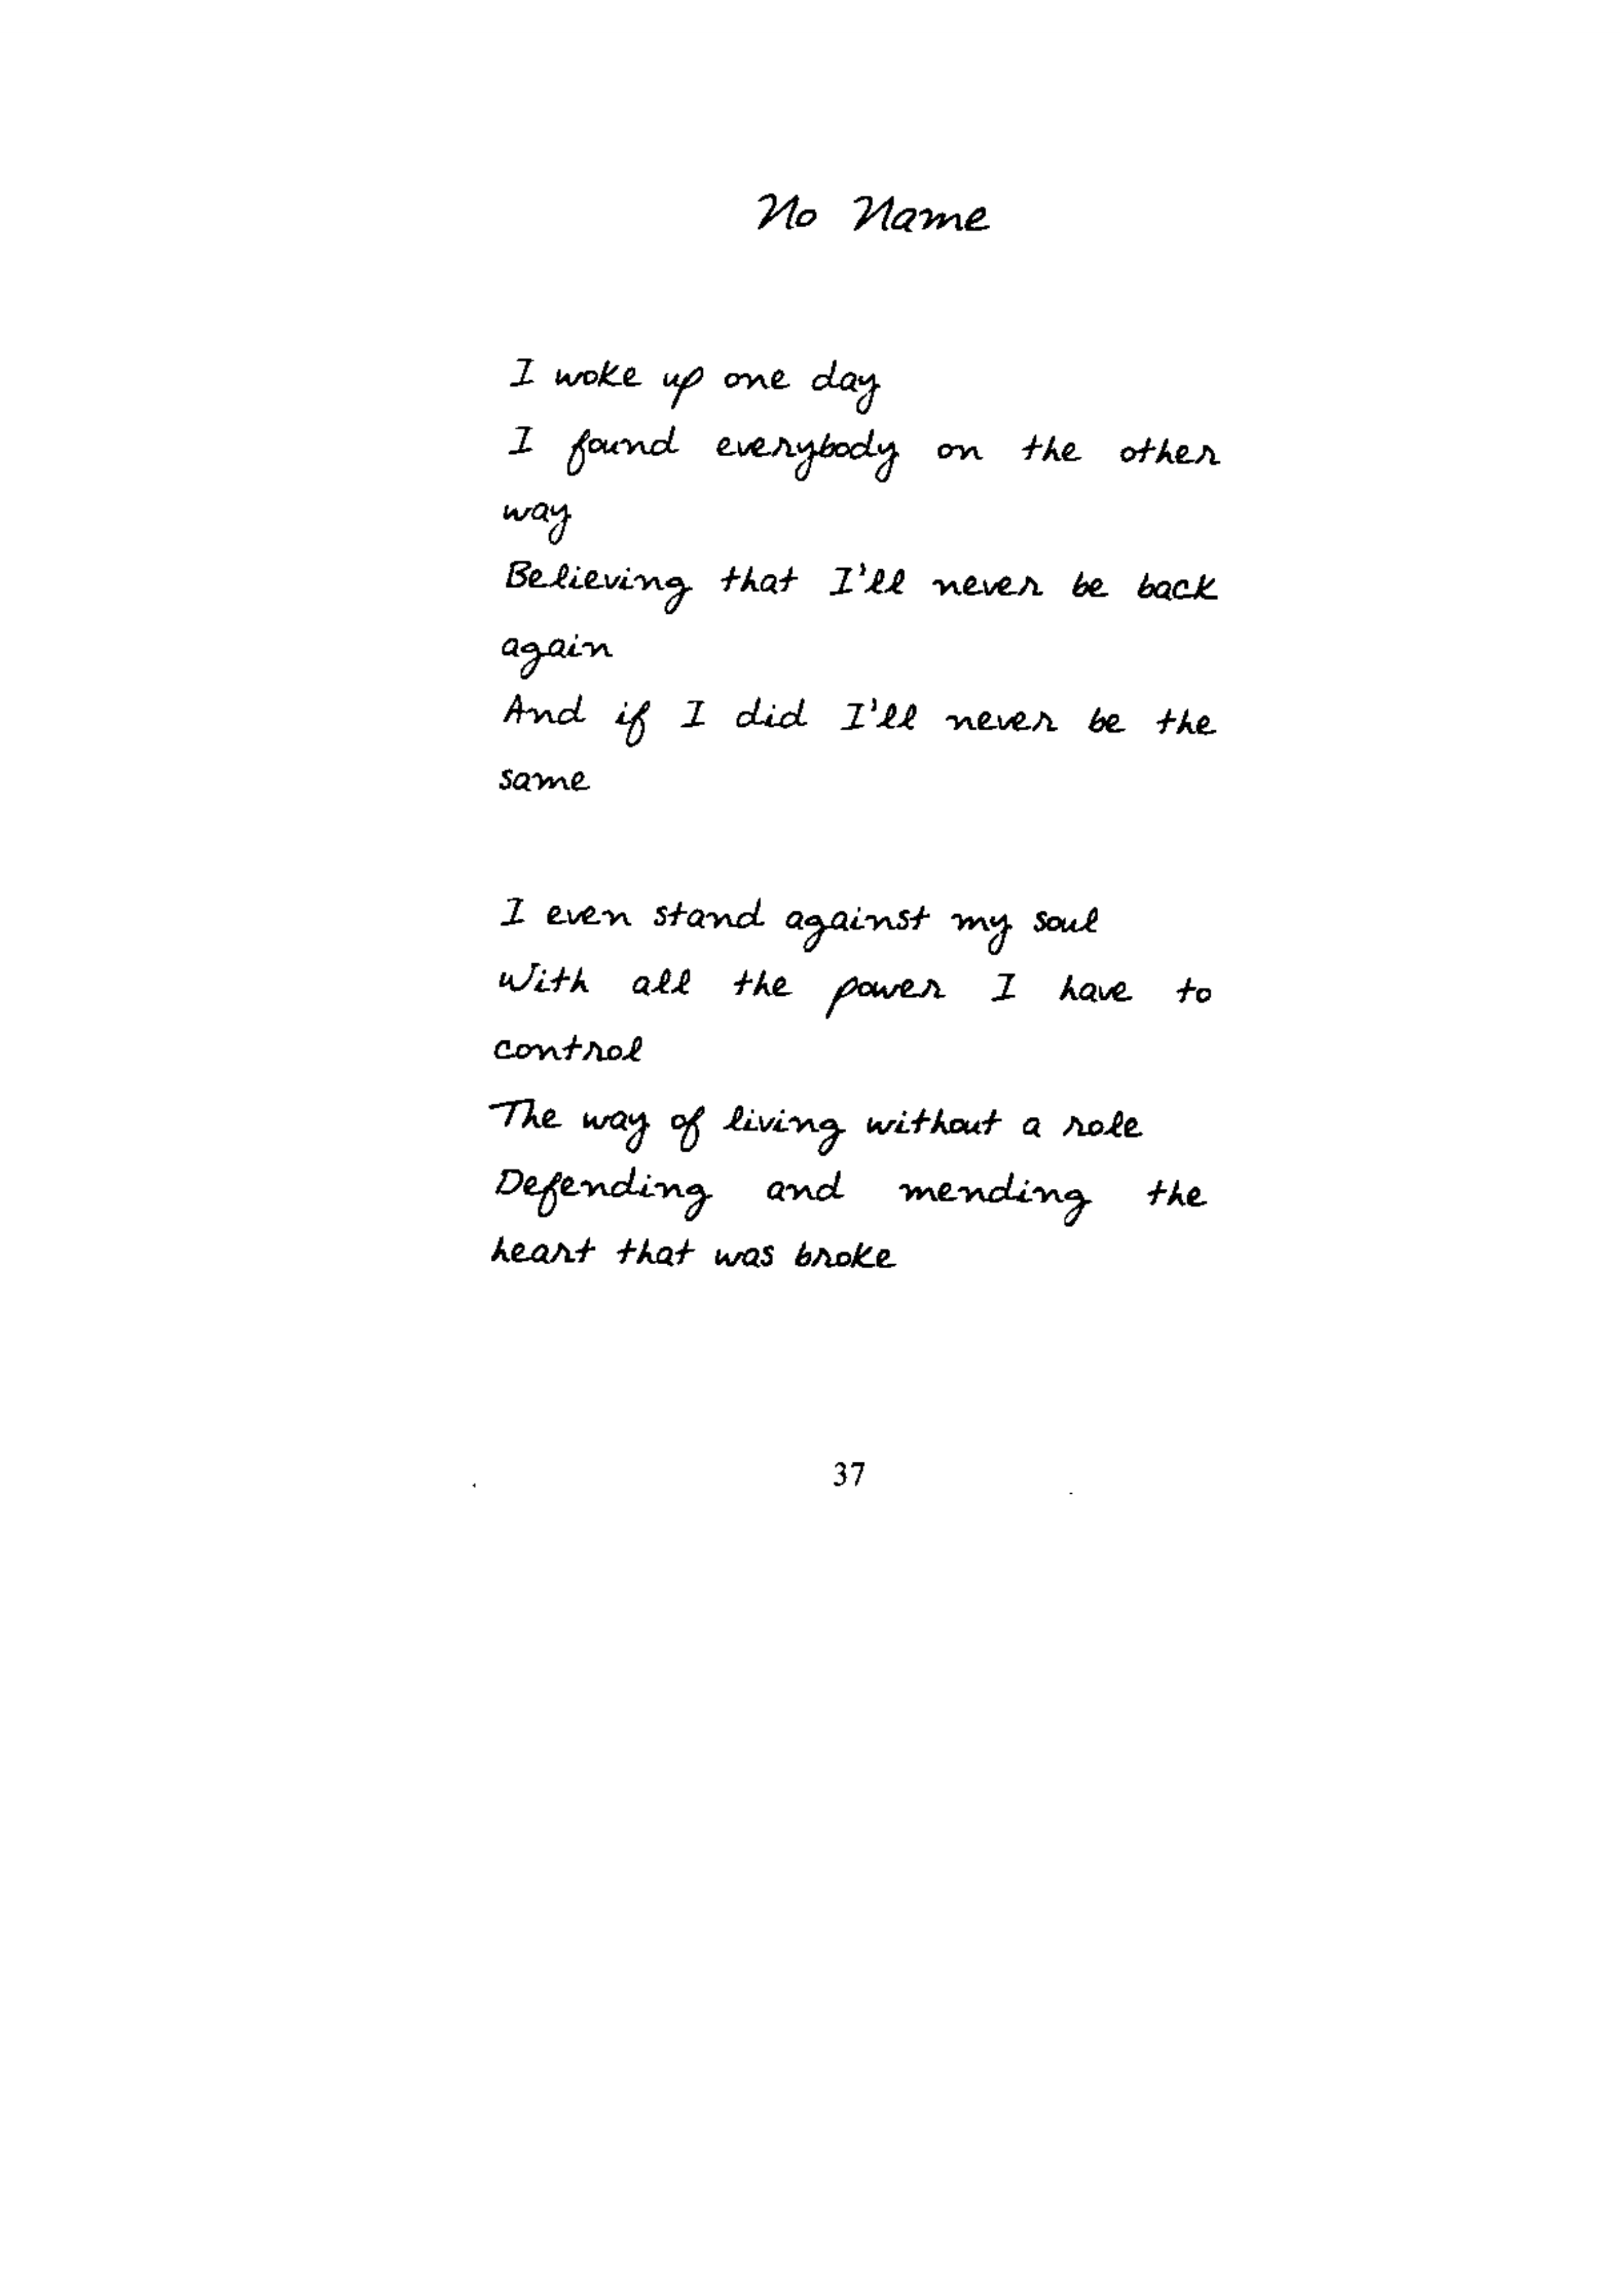 No Name
I woke up one day
I found everybody on the other
way
Believing that I'll never be back
again
And if I did I'll never be the
same
I even stand against my soul
With all the power I have to
control
The way of living without a role
Defending and mending the
heart that was broke
37